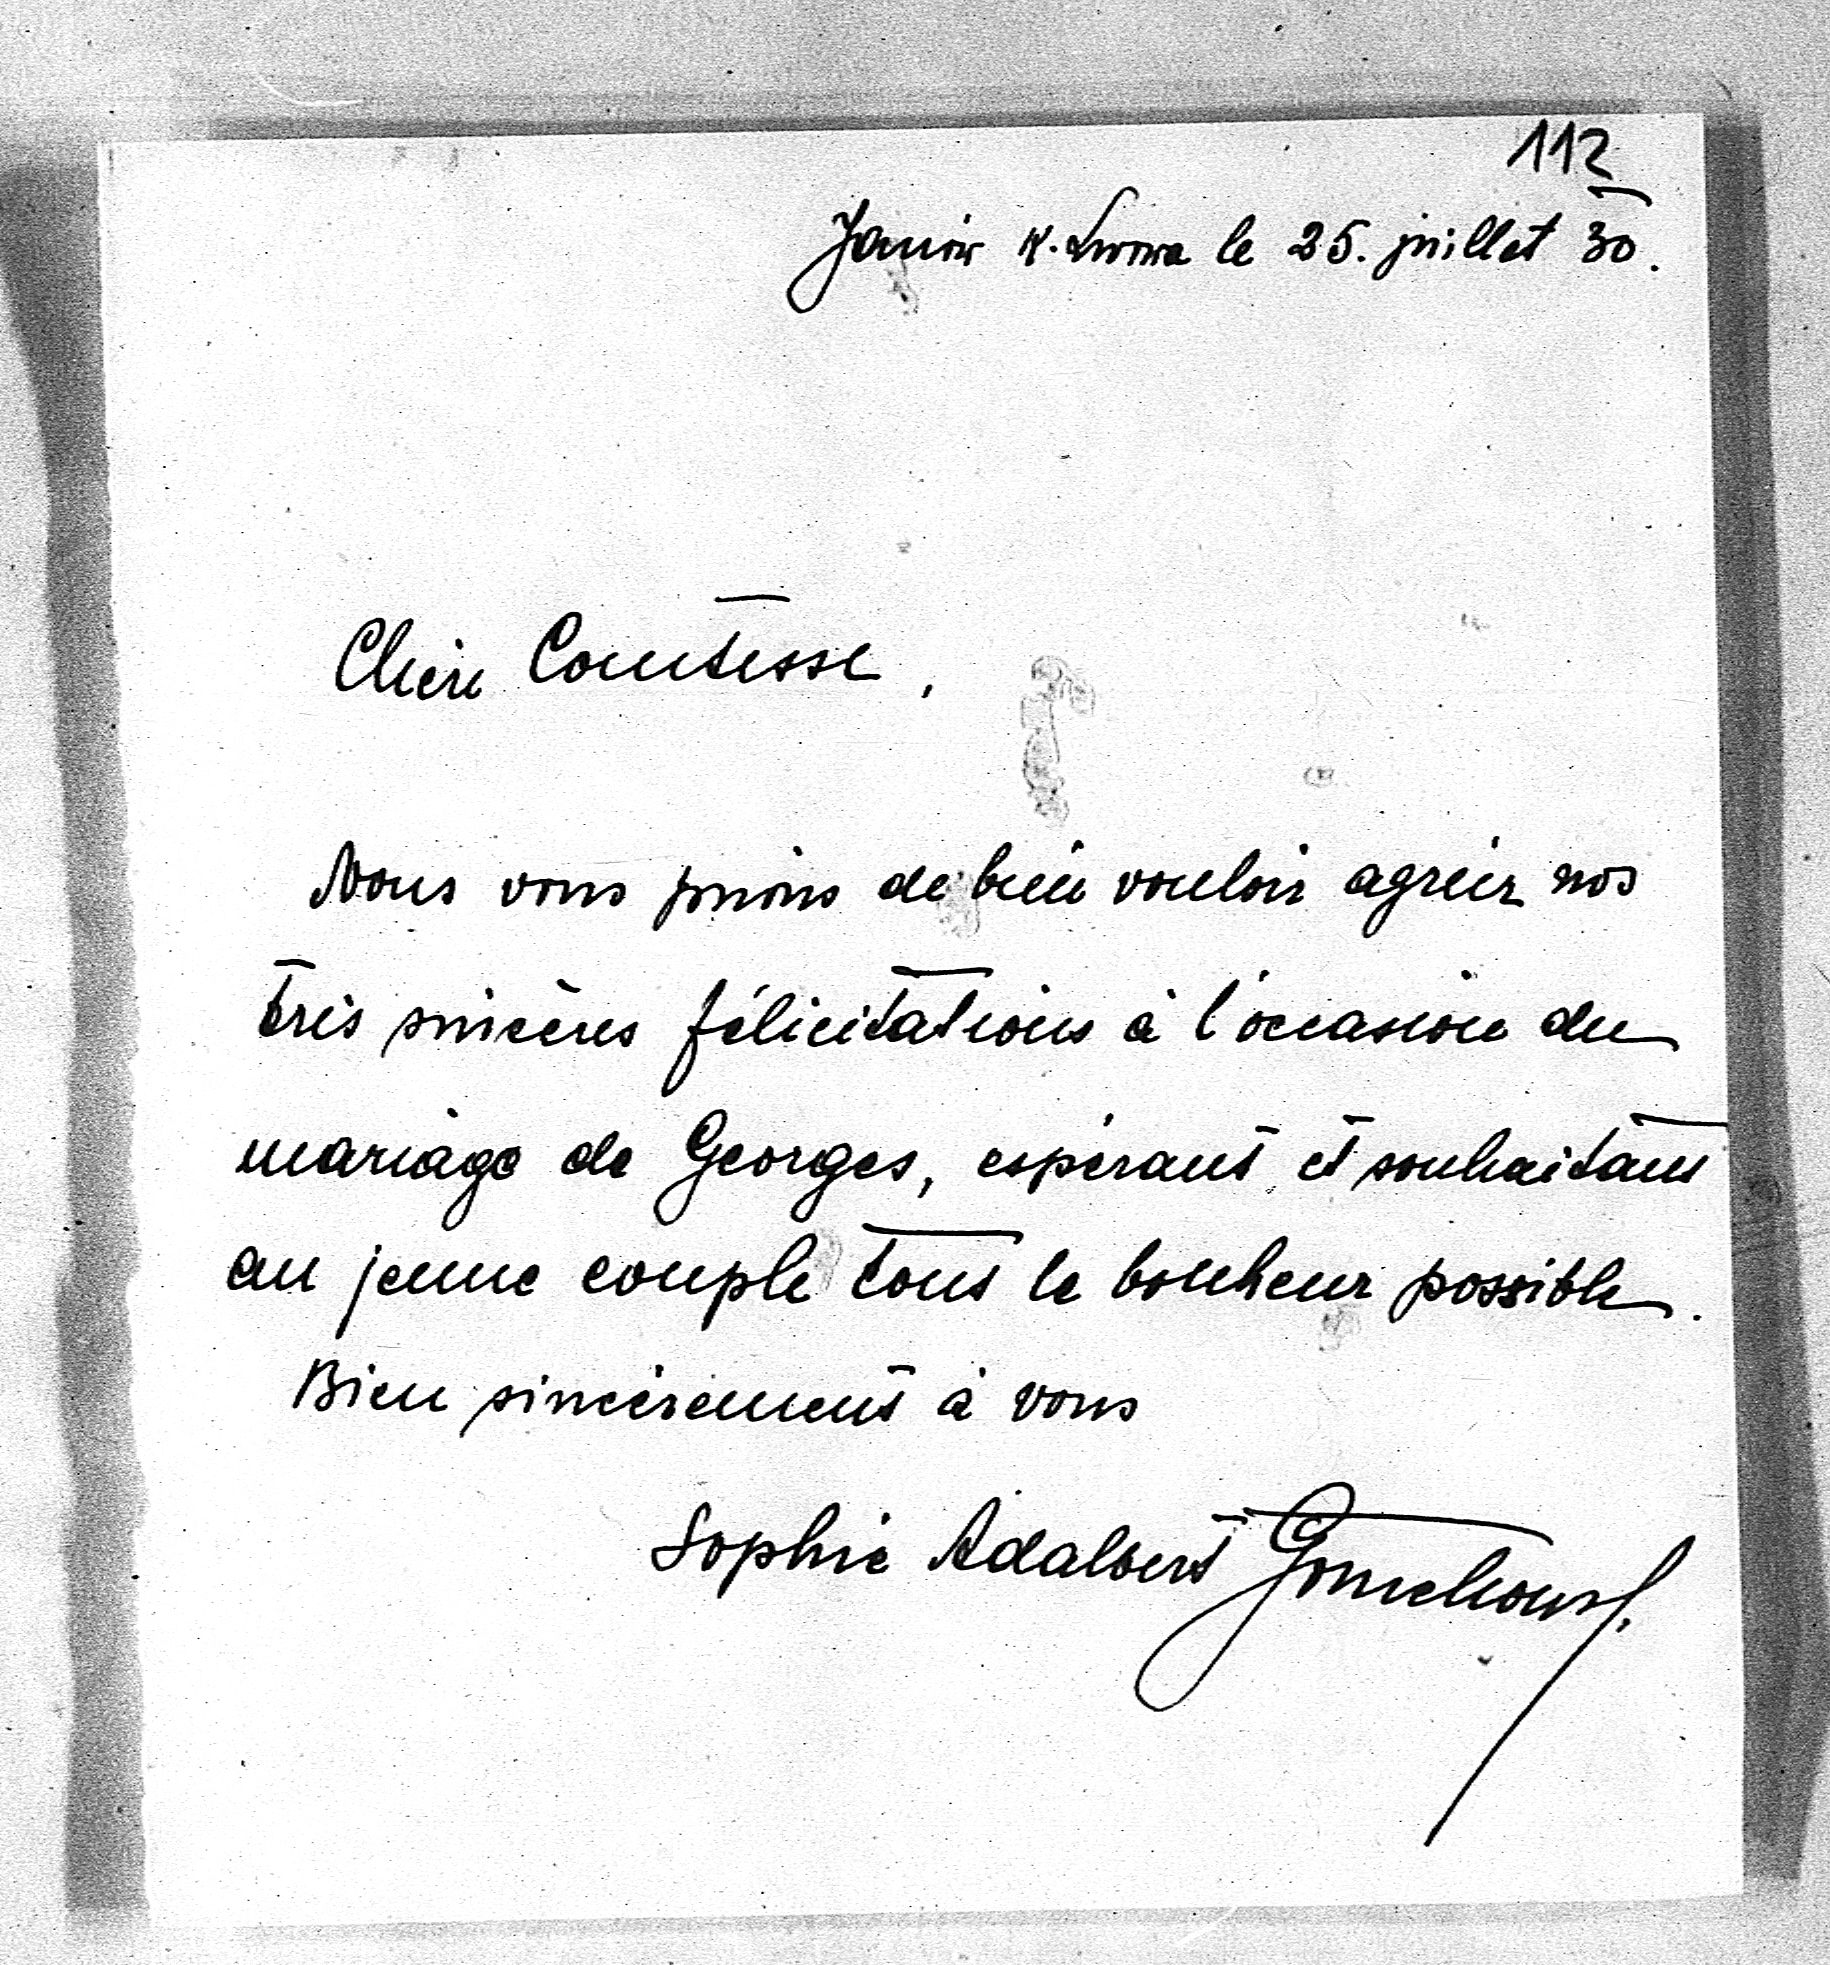 112
Janów k. Lwowa le 25. juillet 30.
Chère Comtesse,
Nous vous prions de bien vouloir agréer nos
très sincères félicitations à l'occasion du
mariage de Georges, espérant et souhaitant
au jeune couple tous le bonheur possible.
Bien sincèrement à vous
Sophie Adalbert